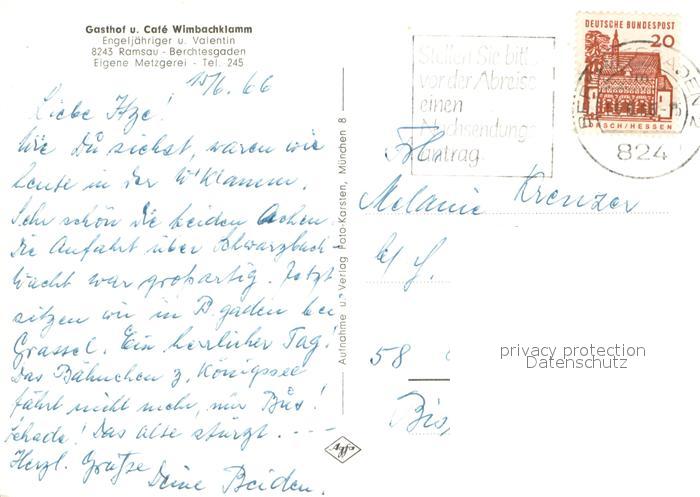 Gasthof u. Café Wimbachklamm
Engeljähriger u. Valentin
8243 Ramsau - Berchtesgaden
Eigene Metzgerei - Tel. 245
10/6. 66
Liebe Itze!
Wie Du siehst, waren wir
heute in der W'Klamm.
Sehr schön die beiden Achen.
Die Anfahrt über Schwarzbach-
wacht war großartig. Jetzt
sitzen wir in B.gaden bei
Grassel. Ein herrlicher Tag!
Das Bähnchen z. Königssee
fährt nicht mehr, nur Bus!
Schade! Das alte stürzt. . --
Herzl. Grüße
Deine Beiden.
Aufnahme u. Verlag Foto-Karsten, München 8
Stellen Sie bitte
vor der Abreise
einen
Nachsendungs-
antrag
DEUTSCHE BUNDESPOST
20
LORSCH/HESSEN
824
Fr.
Melanie Krenzer
58
privacy protection
Datenschutz